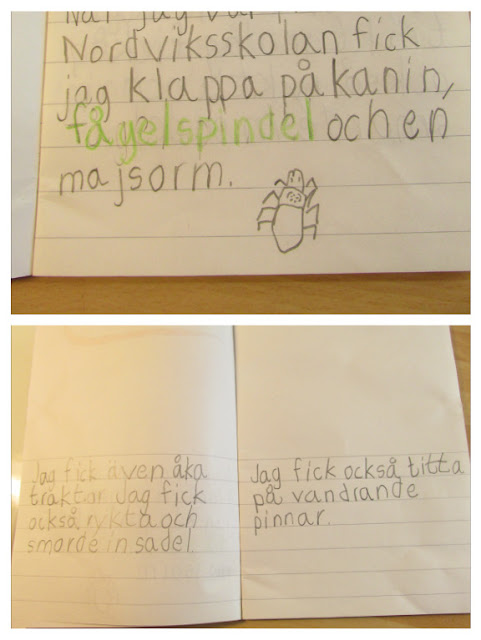 När jag var
Nordviksskolan fick
jag klappa på kanin,
fågelspindel och en
majsorm.
Jag fick även åka
traktor Jag fick
också rykta och
smorde in sadel.
Jag fick också titta
på vandrande
pinnar.